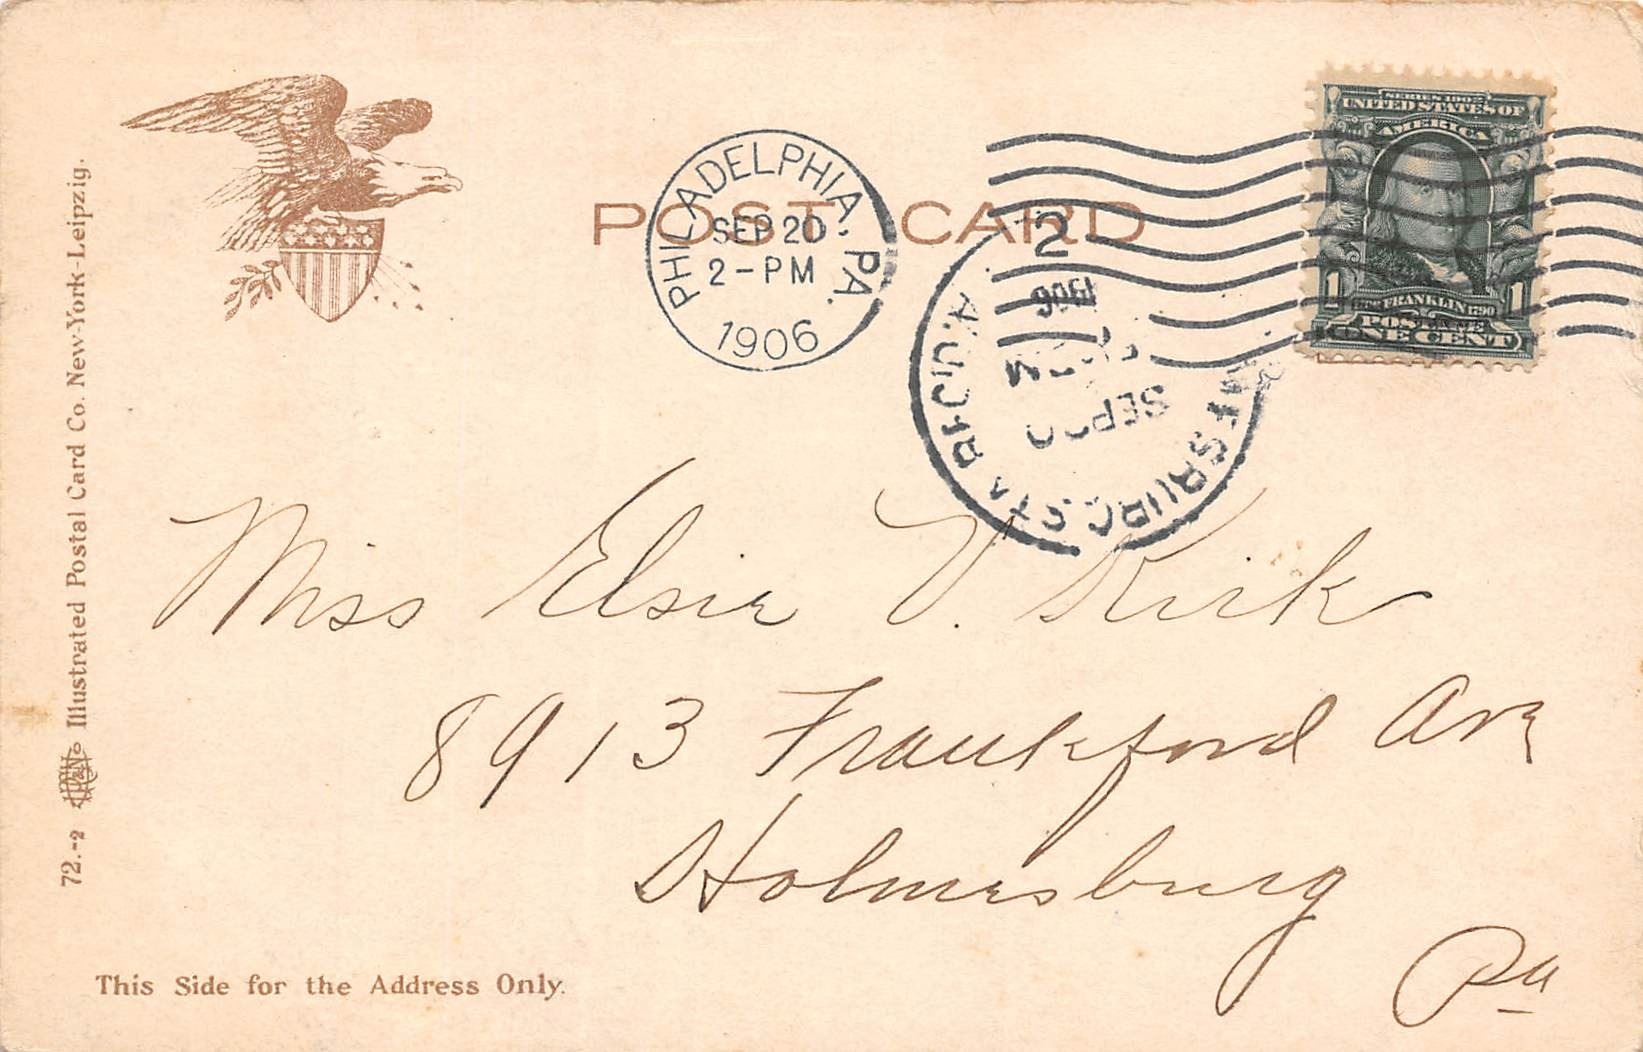 SERIES 1902
UNITED STATES OF
AMERICA
FRANKLIN 1790
1 1
POSTAGE
ONE CENT
PHILADELPHIA, PA.
SEP 20
2-PM
1906
POST CARD
2
1906
SEP
REC'D.
STA
Miss Elsie V. Kirk
8913 Frankford Ave
Holmesburg
Pa
72.-2 Illustrated Postal Card Co. New-York-Leipzig.
This Side for the Address Only.